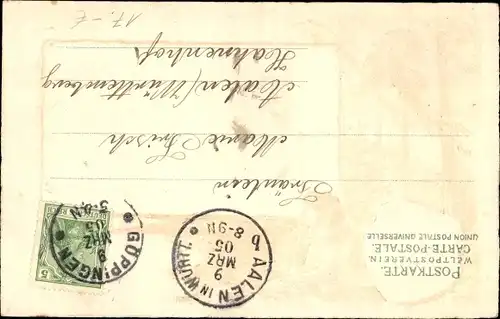 POSTKARTE.
WELTPOSTVEREIN.
CARTE-POSTALE.
UNION POSTALE UNIVERSELLE
GÖPPINGEN
9
MRZ
05
5-6 N
5
AALEN IN WÜRTT.
9
MRZ
05
8-9 N
b
Fräulein
Marie Frisch
Aalen (Württemberg
Hahnenhof
17.-€